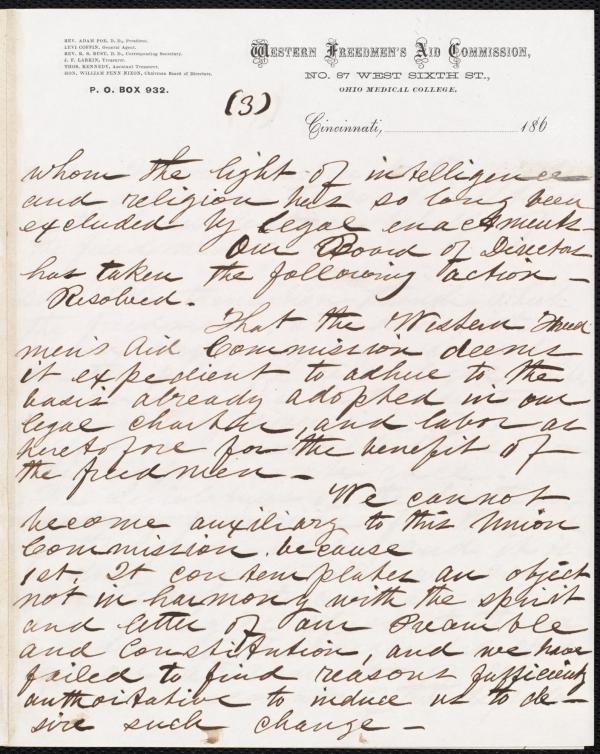 REV. ADAM POE, D. D., President.
LEVI COFFIN, General Agent.
REV. R. S. RUST, D. D., Corresponding Secretary.
J. F. LARKIN, Treasurer.
THOS. KENNEDY, Assistant Treasurer.
HON. WILLIAM PENN NIXON, Chairman Board of Directors.
P. O. BOX 932.
WESTERN FREEDMEN'S AID COMMISSION,
NO. 87 WEST SIXTH ST.,
OHIO MEDICAL COLLEGE.
(3)
Cincinnati, 186
whom the light of intelligence
and religion has so long been
excluded by legal enactments-
Our Board of Directors
has taken the following action -
Resolved.
That the Western Freed
men's Aid Commission deems
it expedient to adhere to the
basis already adopted in our
legal charter, and labor as
heretofore for the benefit of
the freedmen -
We cannot
become auxiliary to this Union
Commission. because
1st. It contemplates an object
not in harmony with the spirit
and letter of our Preamble
and Constitution, and we have
failed to find reasons sufficiently
authoritative to induce us to de-
sire such change -